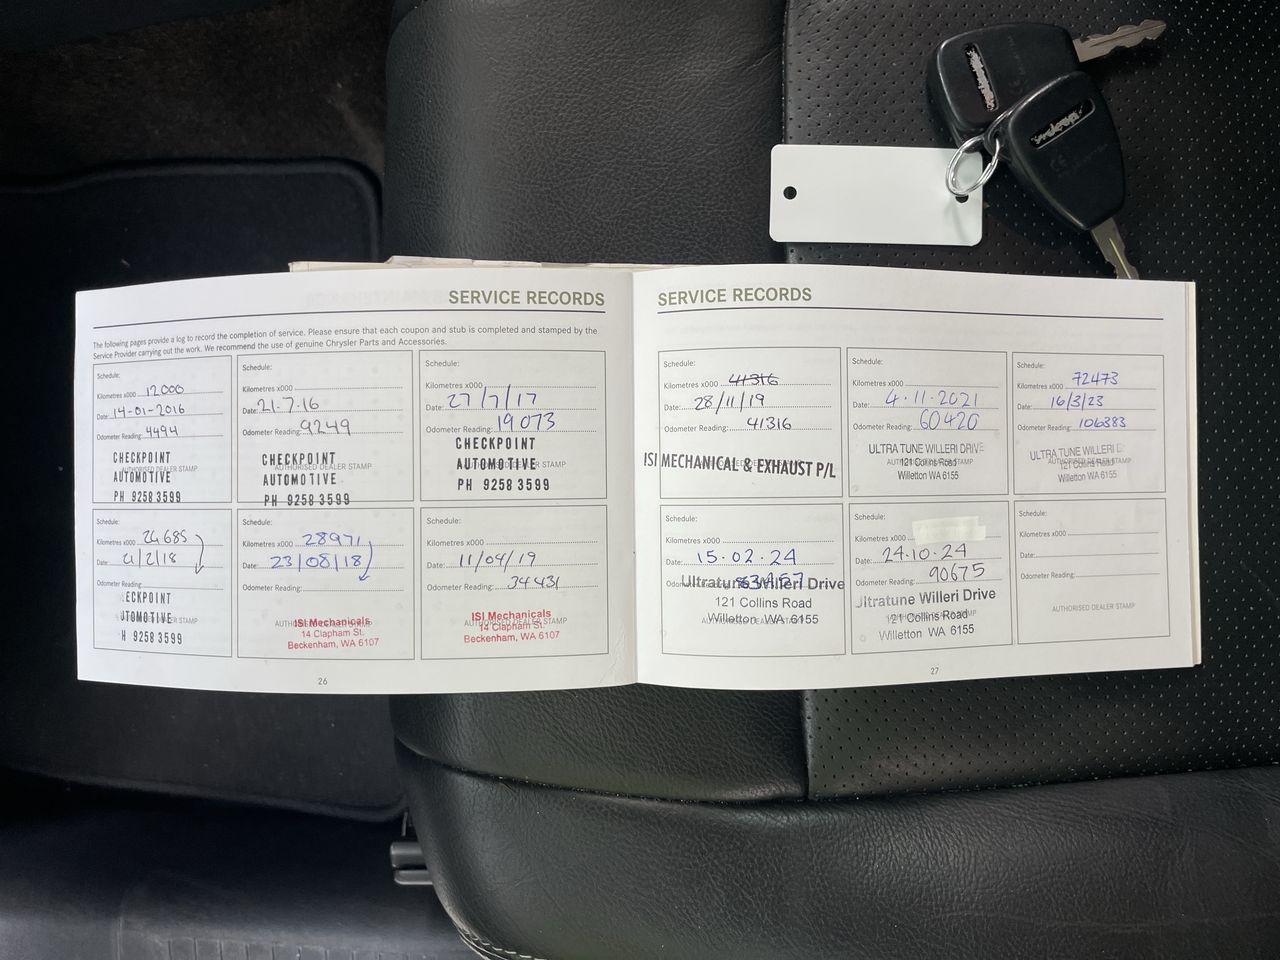 SERVICE RECORDS
The following pages provide a log to record the completion of service. Please ensure that each coupon and stub is completed and stamped by the
Service Provider carrying out the work. We recommend the use of genuine Chrysler Parts and Accessories.
Schedule:
Kilometres x000 12000
Date: 14-01-2016
Odometer Reading: 4494
AUTHORISED DEALER STAMP
CHECKPOINT
AUTOMOTIVE
PH 9258 3599
Schedule:
Kilometres x000
Date: 21.7.16
Odometer Reading: 9249
AUTHORISED DEALER STAMP
CHECKPOINT
AUTOMOTIVE
PH 9258 3599
Schedule:
Kilometres x000
27/7/17
Date:
Odometer Reading: 19073
AUTHORISED DEALER STAMP
CHECKPOINT
AUTOMOTIVE
PH 9258 3599
Schedule:
Kilometres x000 24685
Date: 21/2/18
Odometer Reading:
AUTHORISED DEALER STAMP
ECKPOINT
UTOMOTIVE
H 9258 3599
Schedule:
Kilometres x000 28971
Date: 23/08/18
Odometer Reading:
AUTHORISED DEALER STAMP
ISI Mechanicals
14 Clapham St.
Beckenham, WA 6107
Schedule:
Kilometres x000
Date: 11/04/19
Odometer Reading: 34431
AUTHORISED DEALER STAMP
ISI Mechanicals
14 Clapham St.
Beckenham, WA 6107
26
SERVICE RECORDS
Schedule:
Kilometres x000 41316
Date: 28/11/19
Odometer Reading: 41316
ISI MECHANICAL & EXHAUST P/L
Schedule:
Kilometres x000
Date: 4.11.2021
Odometer Reading: 60420
AUTHORISED DEALER STAMP
ULTRA TUNE WILLERI DRIVE
121 Collins Road
Willetton WA 6155
Schedule:
Kilometres x000 72473
Date: 16/3/23
Odometer Reading: 106383
AUTHORISED DEALER STAMP
ULTRA TUNE WILLERI D
121 Collins Road
Willetton WA 6155
Schedule:
Kilometres x000
Date: 15.02.24
Odometer Reading:
AUTHORISED DEALER STAMP
Ultratune Willeri Drive
121 Collins Road
Willetton WA 6155
Schedule:
Kilometres x000
Date: 24.10.24
Odometer Reading: 90675
AUTHORISED DEALER STAMP
Ultratune Willeri Drive
121 Collins Road
Willetton WA 6155
Schedule:
Kilometres x000
Date:
Odometer Reading:
AUTHORISED DEALER STAMP
27